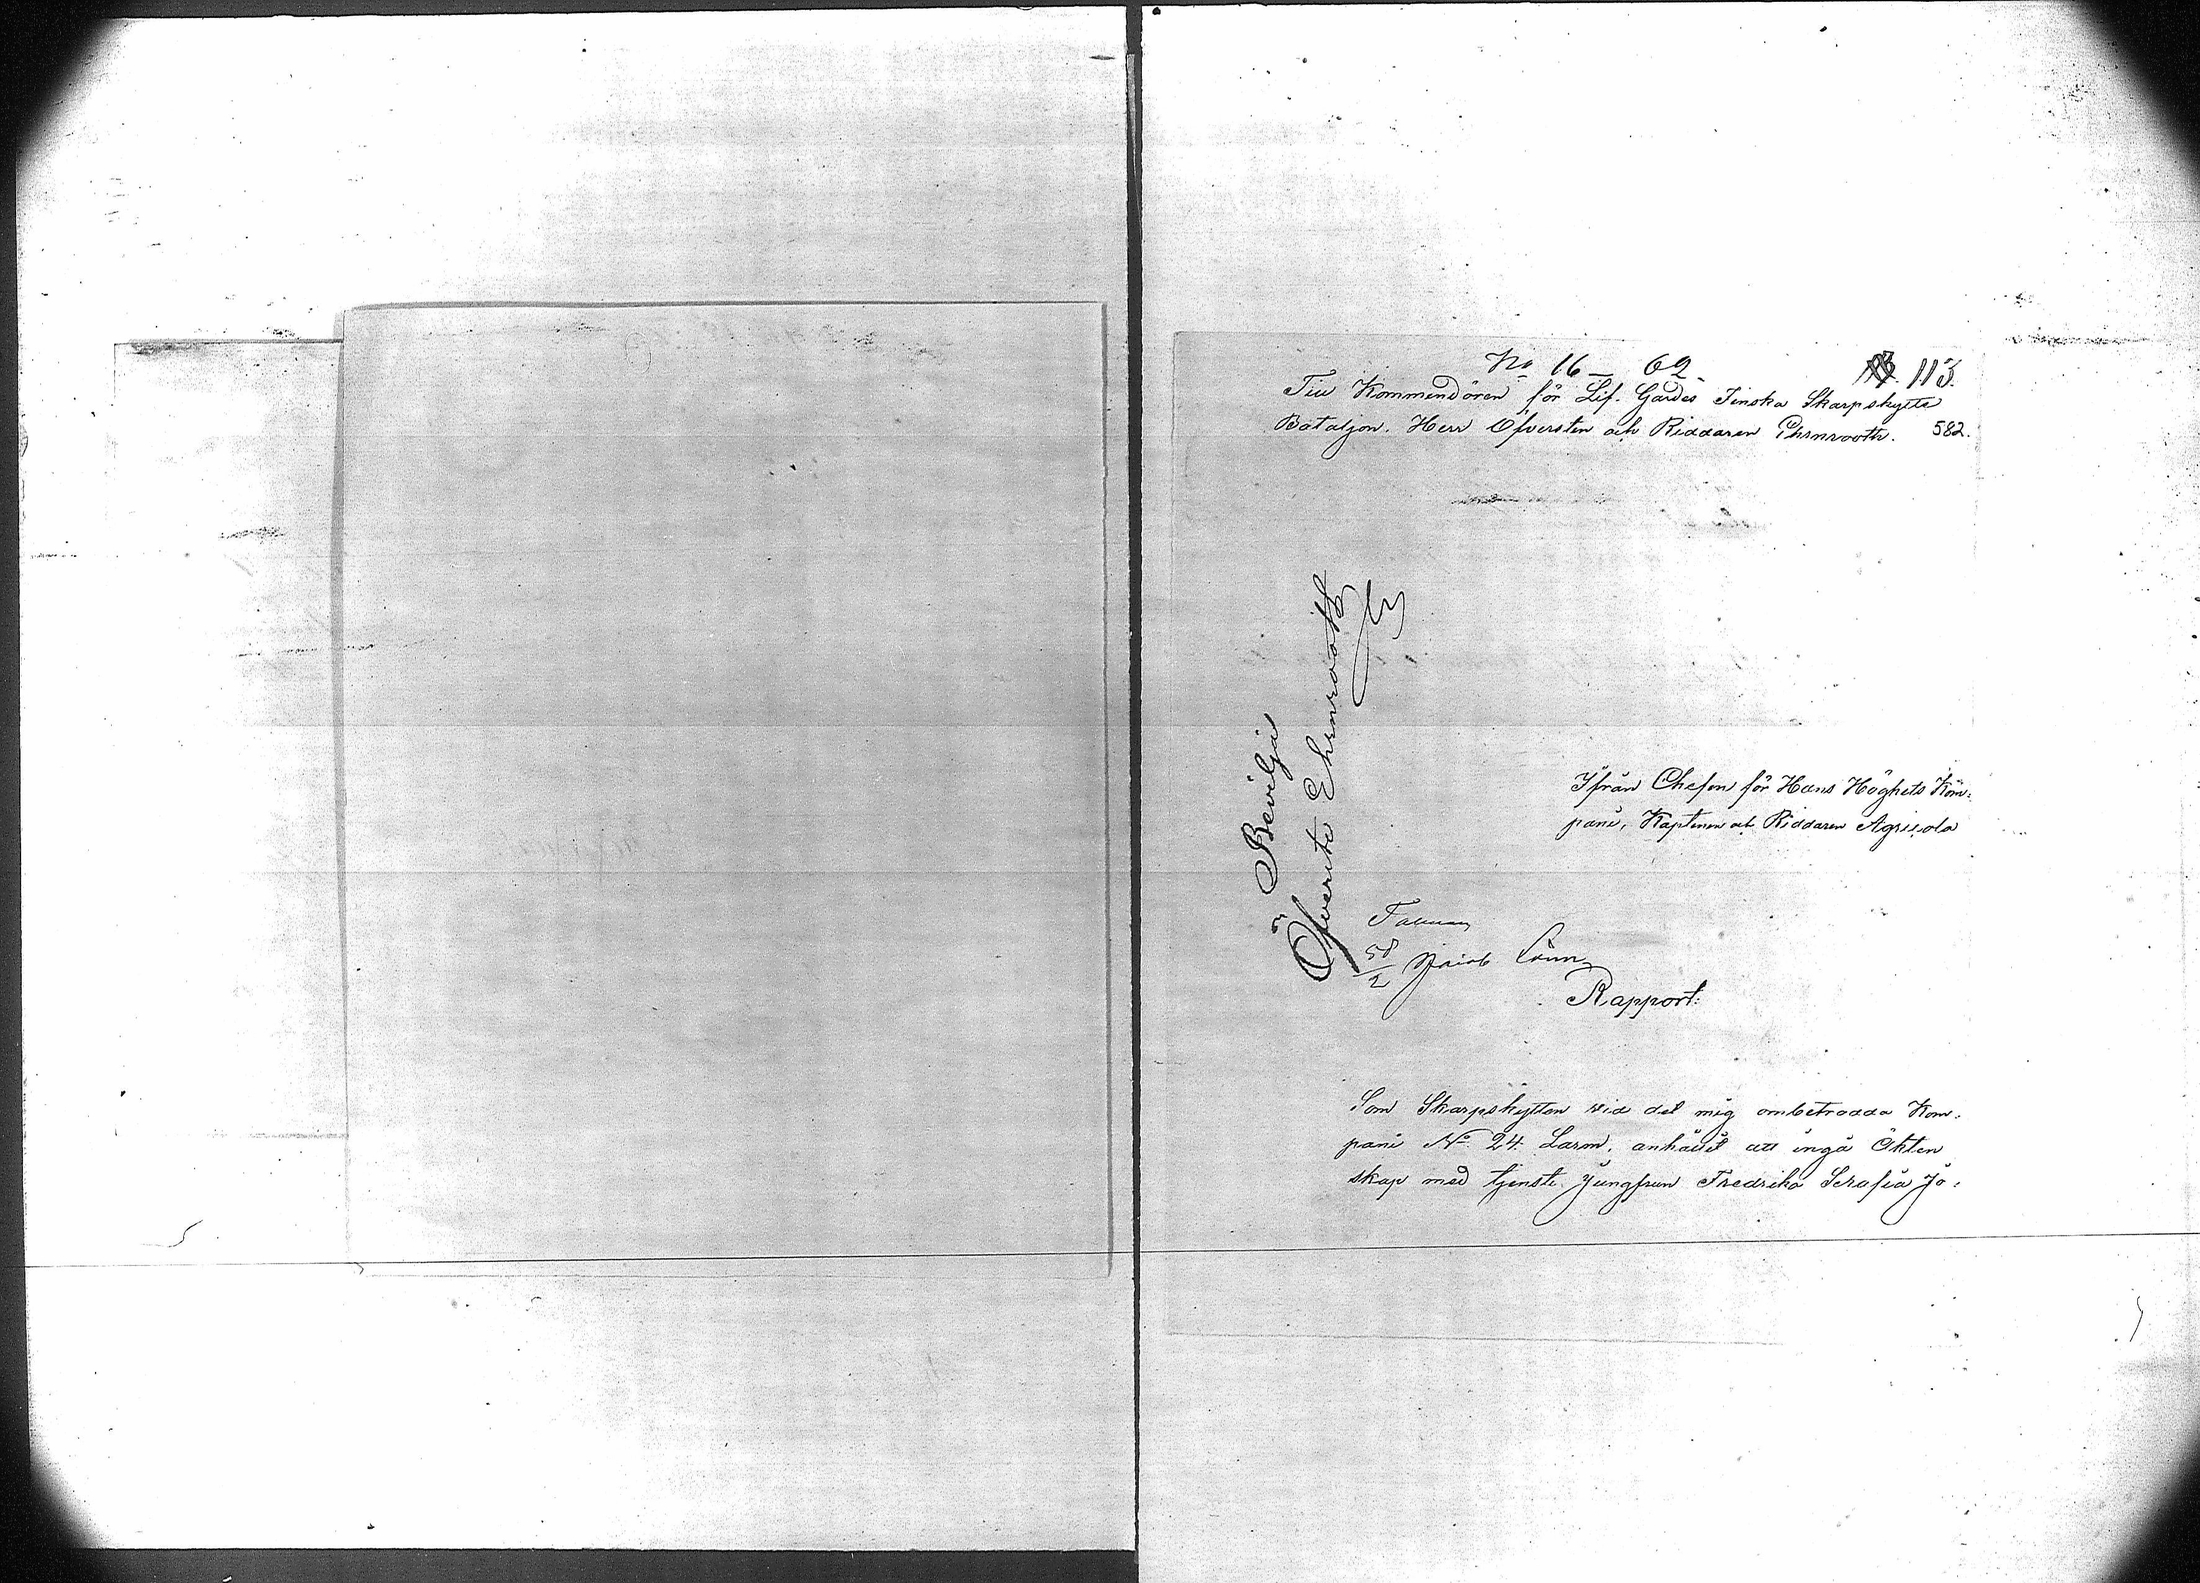 No 16 — 62. 113.
Till Kommendören för Lif. Gardes Finska Skarpskytte
Bataljon. Herr Öfversten och Riddaren Ehrnrooth. 582.
Beviljas
Öfverste Ehrnrooth
Ifrån Chefen för Hans Höghets Kom:
pani, Kaptenen och Riddaren Agricola
58/2 Jacob
Rapport:
Som Skarpskytten vid det mig ombetrodda Kom:
pani No 24. Larm, anhållit att ingå Äkten
skap med tjenste Jungfrun Fredrika Serafia Jo: